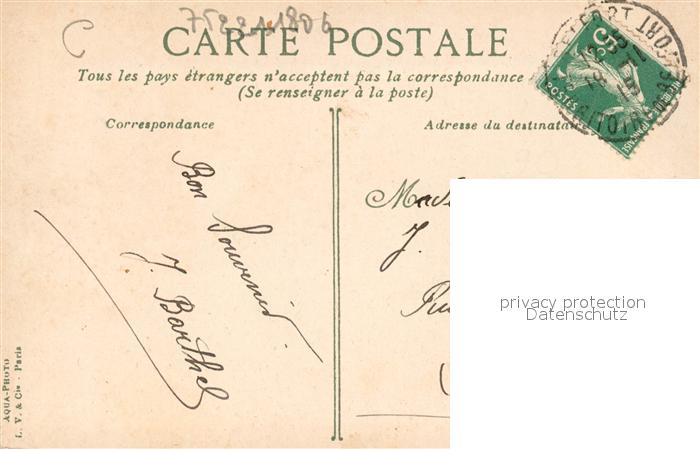 752211806
C
CARTE POSTALE
Tous les pays étrangers n'acceptent pas la correspondance
(Se renseigner à la poste)
Correspondance
Adresse du destinata
Bon Souvenir
J. Barthel
J.
privacy protection
Datenschutz
AQUA-PHOTO
L. V. & Cie - Paris
POSTES